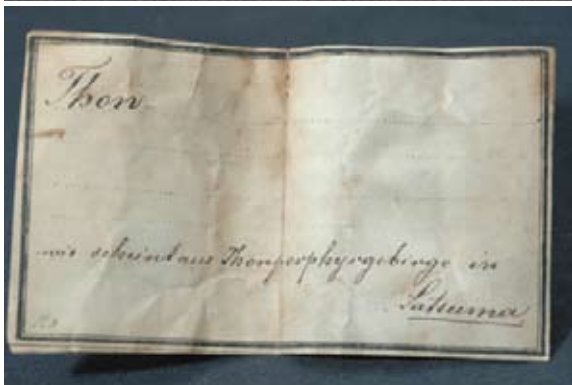 Thon
wie scheint aus Thonporphyrgebirge in
Satsuma